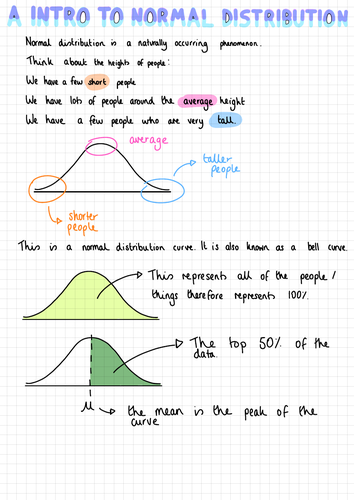 A INTRO TO NORMAL DISTRIBUTION
Normal distribution is a naturally occurring phenomenon.
Think about the heights of people:
We have a few short people
We have lots of people around the average height
We have a few people who are very tall.
average
taller
people
shorter
people
This is a normal distribution curve. It is also known as a bell curve.
This represents all of the people/
things therefore represents 100%.
The top 50% of the
data.
μ
the mean is the peak of the
curve